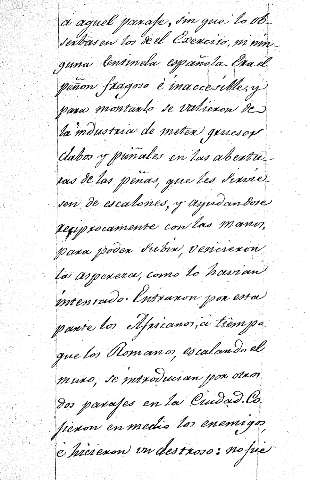 a aquel parage, sin que lo ob-
serbasen los de el Exercito, ni nin-
guna Centinela española. Era el
piñon fragoso é inaccesible, y
para montarlo se valieron de
la industria de meter gruesos
clabos y puñales en las abertu-
ras de las peñas, que les sirvie-
sen de escalones, y ayudandose
reciprocamente con las manos,
para poder subir, vencieron
la aspereza, como lo havian
intentado. Entraron por esta
parte los Africanos, á tiempo
que los Romanos, escalando el
muro, se introducian por otros
dos parages en la Ciudad. Co-
jieron en medio los enemigos,
é hicieron un destroso: no fue